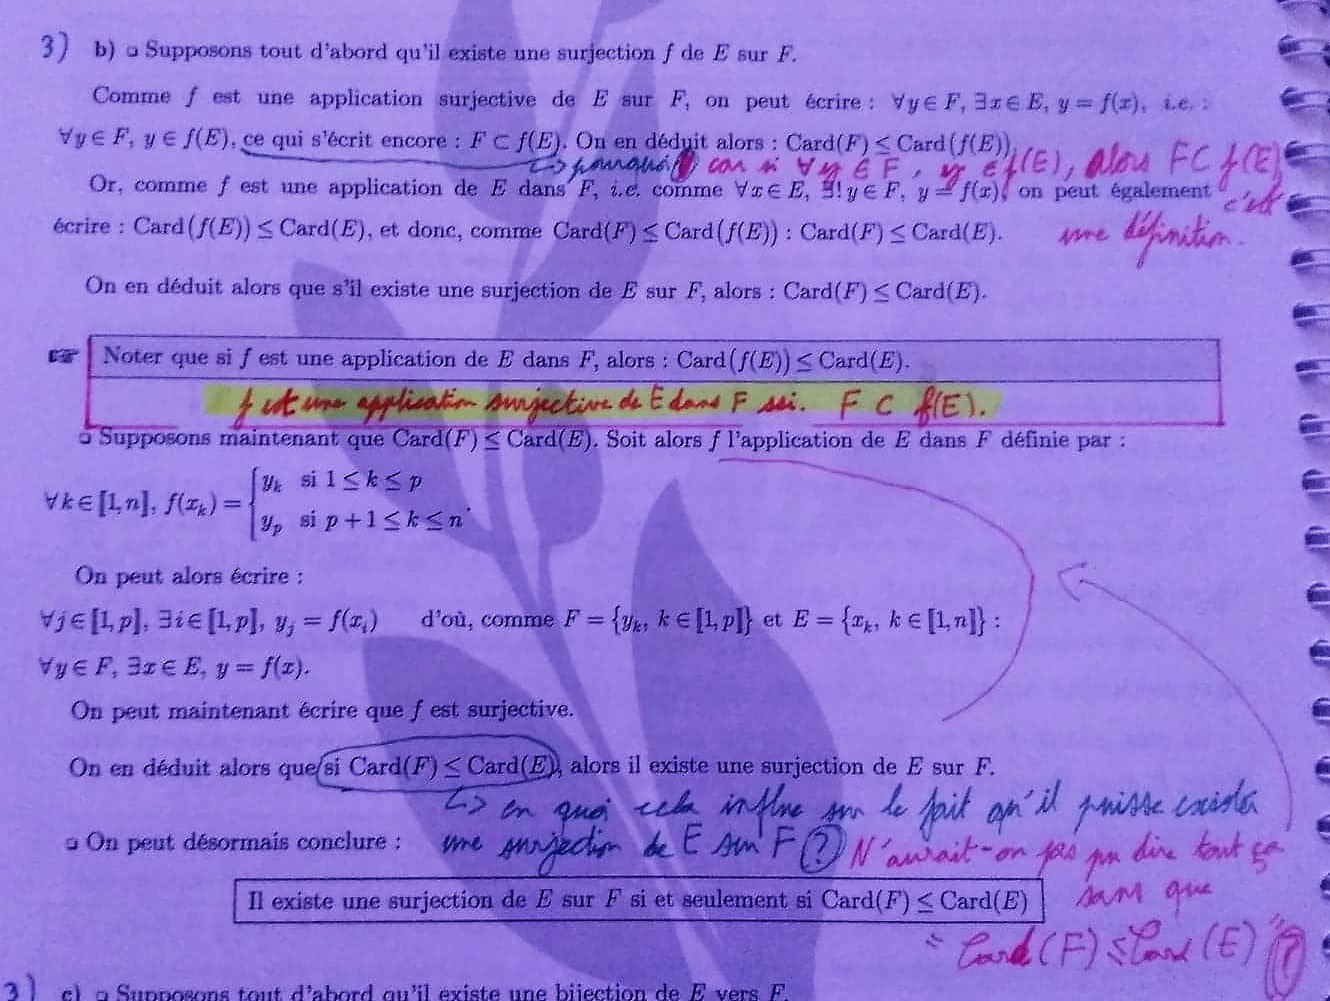 3) b) ❑ Supposons tout d'abord qu'il existe une surjection f de E sur F.
Comme f est une application surjective de E sur F, on peut écrire : ∀y ∈ F, ∃x ∈ E, y = f(x), i.e. :
∀y ∈ F, y ∈ f(E), ce qui s'écrit encore : F ⊂ f(E). On en déduit alors : Card(F) ≤ Card(f(E)).
↳ pourquoi car si ∀y ∈ F, y ∈ f(E), alors F ⊂ f(E)
Or, comme f est une application de E dans F, i.e. comme ∀x ∈ E, ∃! y ∈ F, y = f(x), on peut également
c'est
écrire : Card(f(E)) ≤ Card(E), et donc, comme Card(F) ≤ Card(f(E)) : Card(F) ≤ Card(E).
une définition.
On en déduit alors que s'il existe une surjection de E sur F, alors : Card(F) ≤ Card(E).
☞ Noter que si f est une application de E dans F, alors : Card(f(E)) ≤ Card(E).
f est une application surjective de E dans F ssi. F ⊂ f(E).
❑ Supposons maintenant que Card(F) ≤ Card(E). Soit alors f l'application de E dans F définie par :
∀k ∈ [1,n], f(x_k) = { y_k si 1 ≤ k ≤ p
y_p si p+1 ≤ k ≤ n .
On peut alors écrire :
∀j ∈ [1,p], ∃i ∈ [1,p], y_j = f(x_i) d'où, comme F = {y_k, k ∈ [1,p]} et E = {x_k, k ∈ [1,n]} :
∀y ∈ F, ∃x ∈ E, y = f(x).
On peut maintenant écrire que f est surjective.
On en déduit alors que si Card(F) ≤ Card(E), alors il existe une surjection de E sur F.
↳ en quoi cela influe sur le fait qu'il puisse exister
❑ On peut désormais conclure :
une surjection de E sur F ? N'aurait-on pas pu dire tout ça
sans que
Il existe une surjection de E sur F si et seulement si Card(F) ≤ Card(E)
" Card(F) ≤ Card(E) " ?
3) c) ❑ Supposons tout d'abord qu'il existe une bijection de E vers F.